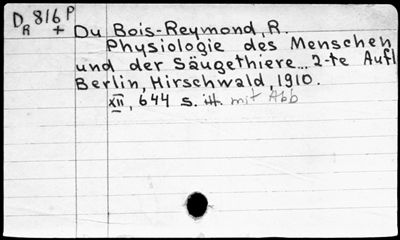 DR 816 P
+
Du Bois-Reymond, R.
Physiologie des Menschen
und der Säugethiere... 2-te Aufl
Berlin, Hirschwald, 1910.
XII, 644 s. ill. mit Abb